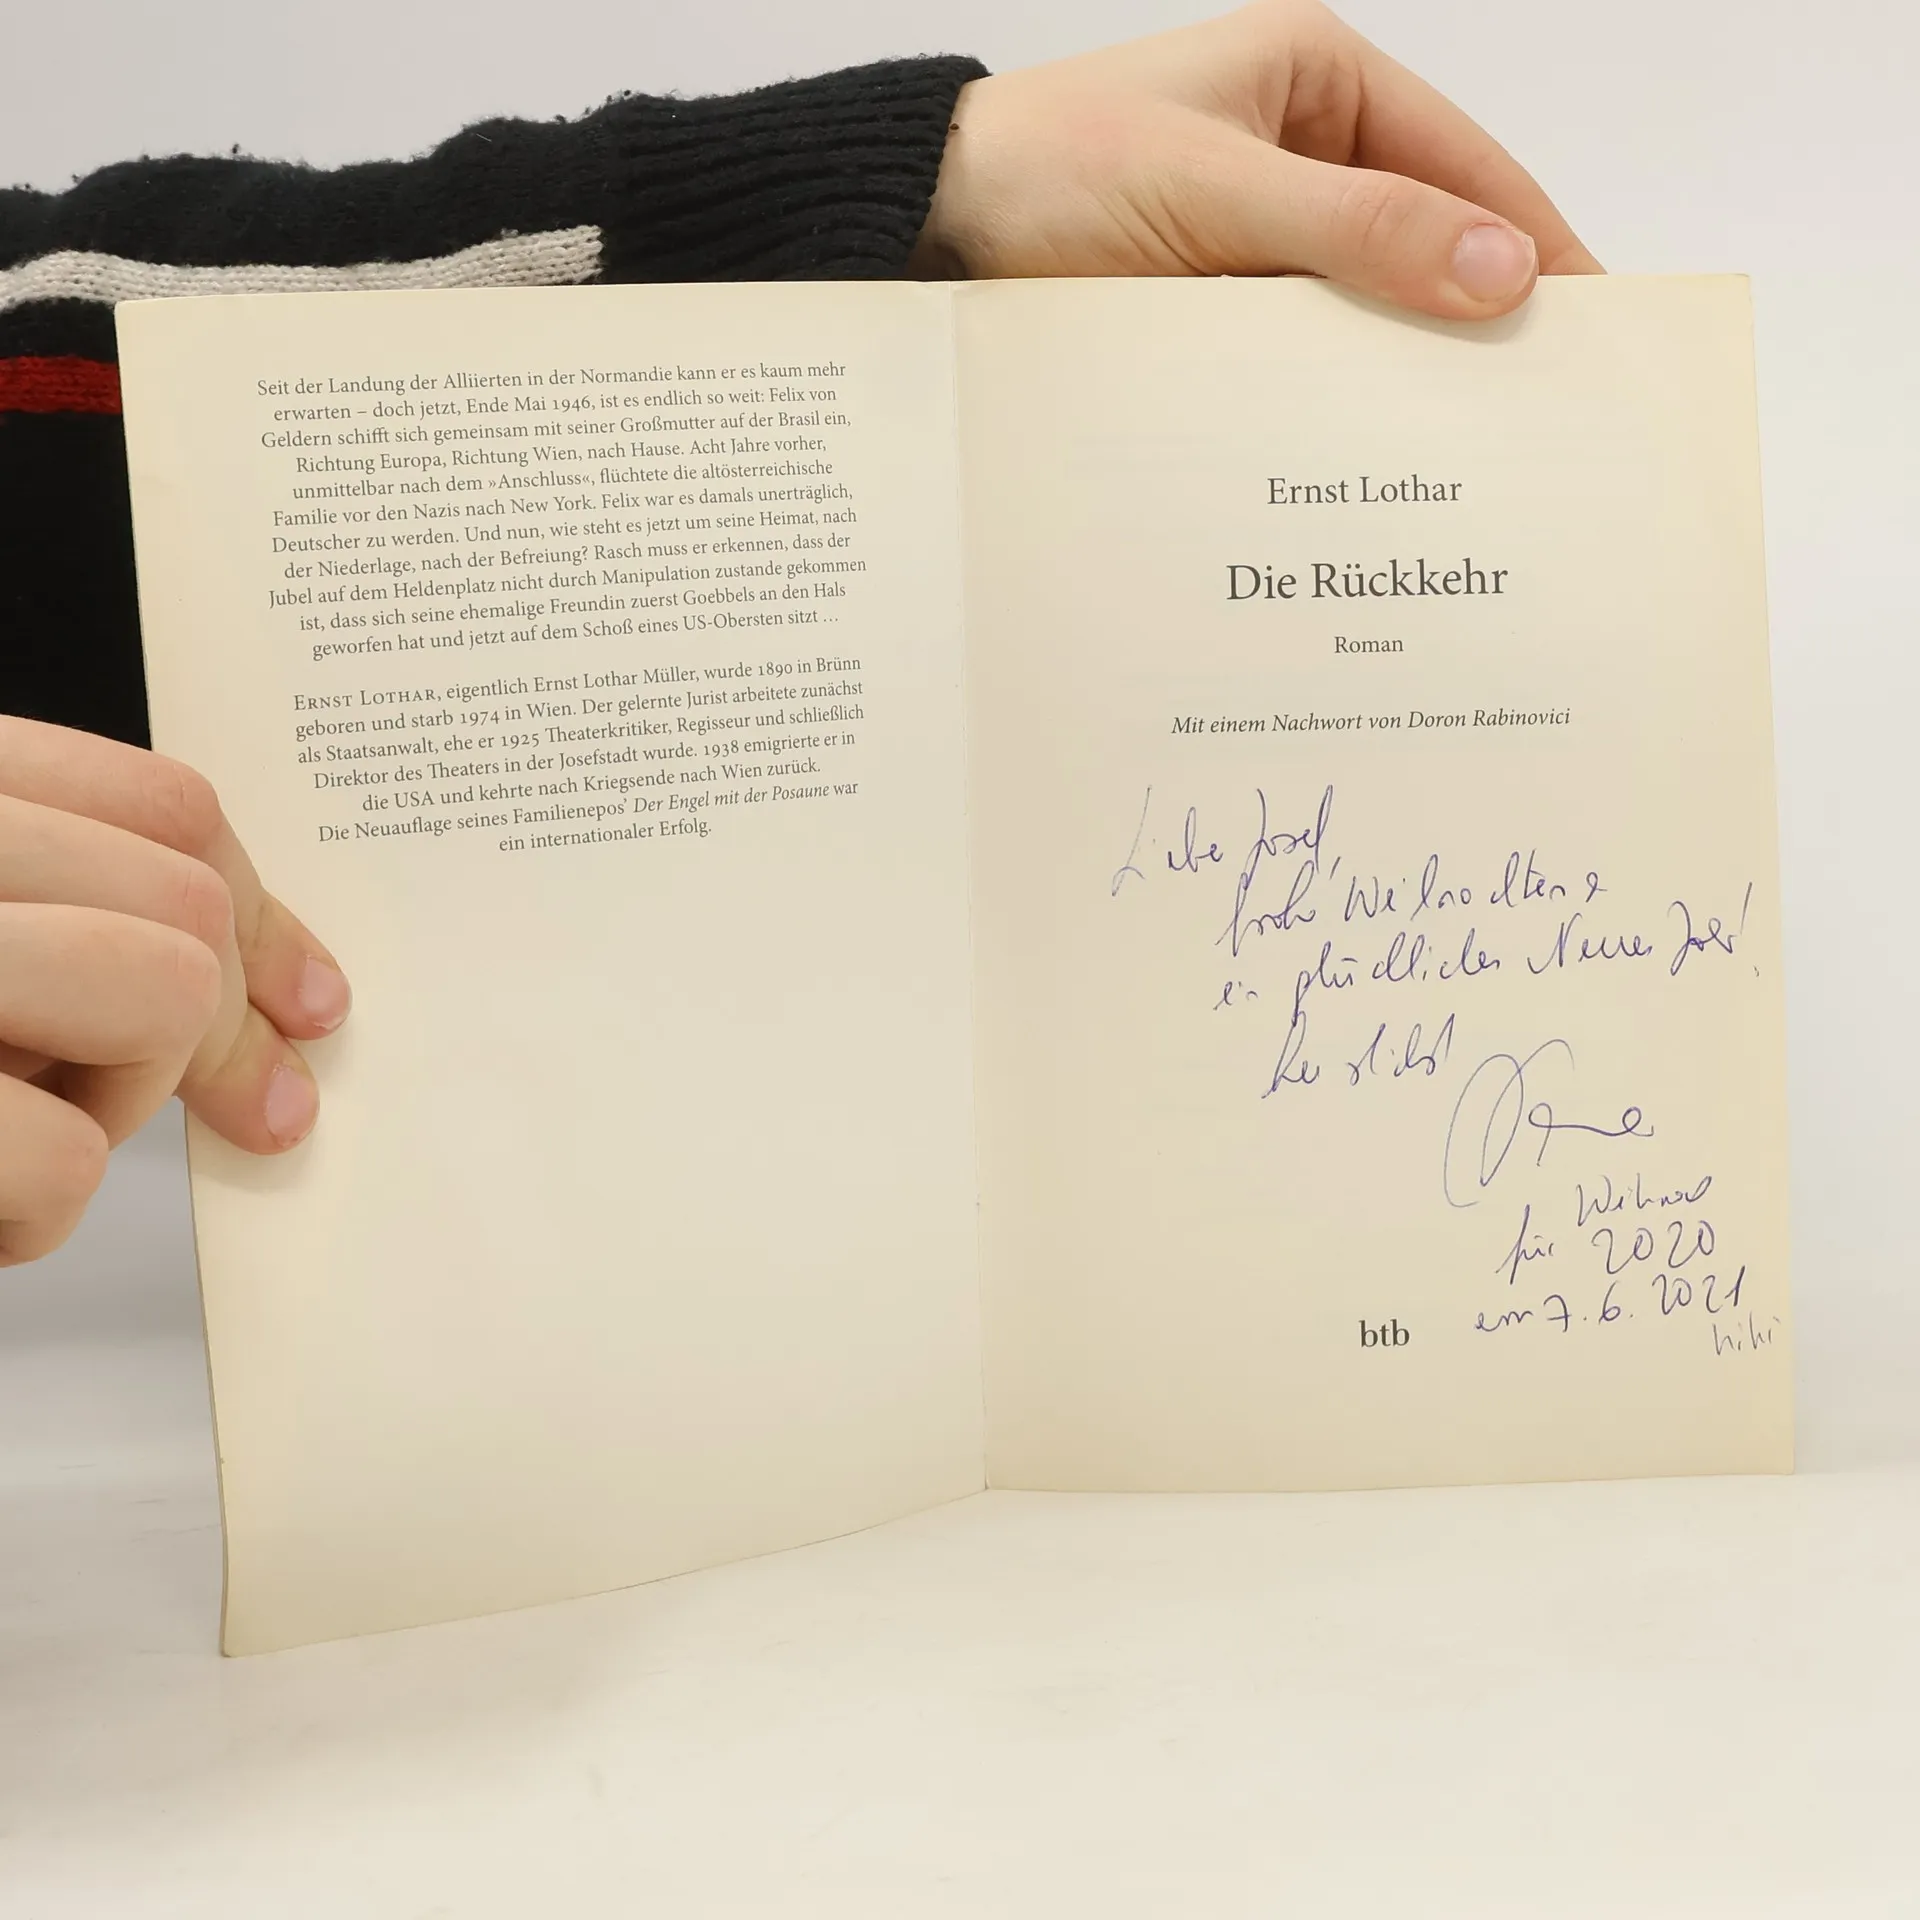 Seit der Landung der Alliierten in der Normandie kann er es kaum mehr
erwarten – doch jetzt, Ende Mai 1946, ist es endlich so weit: Felix von
Geldern schifft sich gemeinsam mit seiner Großmutter auf der Brasil ein,
Richtung Europa, Richtung Wien, nach Hause. Acht Jahre vorher,
unmittelbar nach dem »Anschluss«, flüchtete die altösterreichische
Familie vor den Nazis nach New York. Felix war es damals unerträglich,
Deutscher zu werden. Und nun, wie steht es jetzt um seine Heimat, nach
der Niederlage, nach der Befreiung? Rasch muss er erkennen, dass der
Jubel auf dem Heldenplatz nicht durch Manipulation zustande gekommen
ist, dass sich seine ehemalige Freundin zuerst Goebbels an den Hals
geworfen hat und jetzt auf dem Schoß eines US-Obersten sitzt ...
ERNST LOTHAR, eigentlich Ernst Lothar Müller, wurde 1890 in Brünn
geboren und starb 1974 in Wien. Der gelernte Jurist arbeitete zunächst
als Staatsanwalt, ehe er 1925 Theaterkritiker, Regisseur und schließlich
Direktor des Theaters in der Josefstadt wurde. 1938 emigrierte er in
die USA und kehrte nach Kriegsende nach Wien zurück.
Die Neuauflage seines Familienepos' Der Engel mit der Posaune war
ein internationaler Erfolg.
Ernst Lothar
Die Rückkehr
Roman
Mit einem Nachwort von Doron Rabinovici
Liebe Josef,
frohe Weihnachten &
ein glückliches Neues Jahr!
herzlichst
für Weihnac
2020
am 7. 6. 2021
hihi
btb